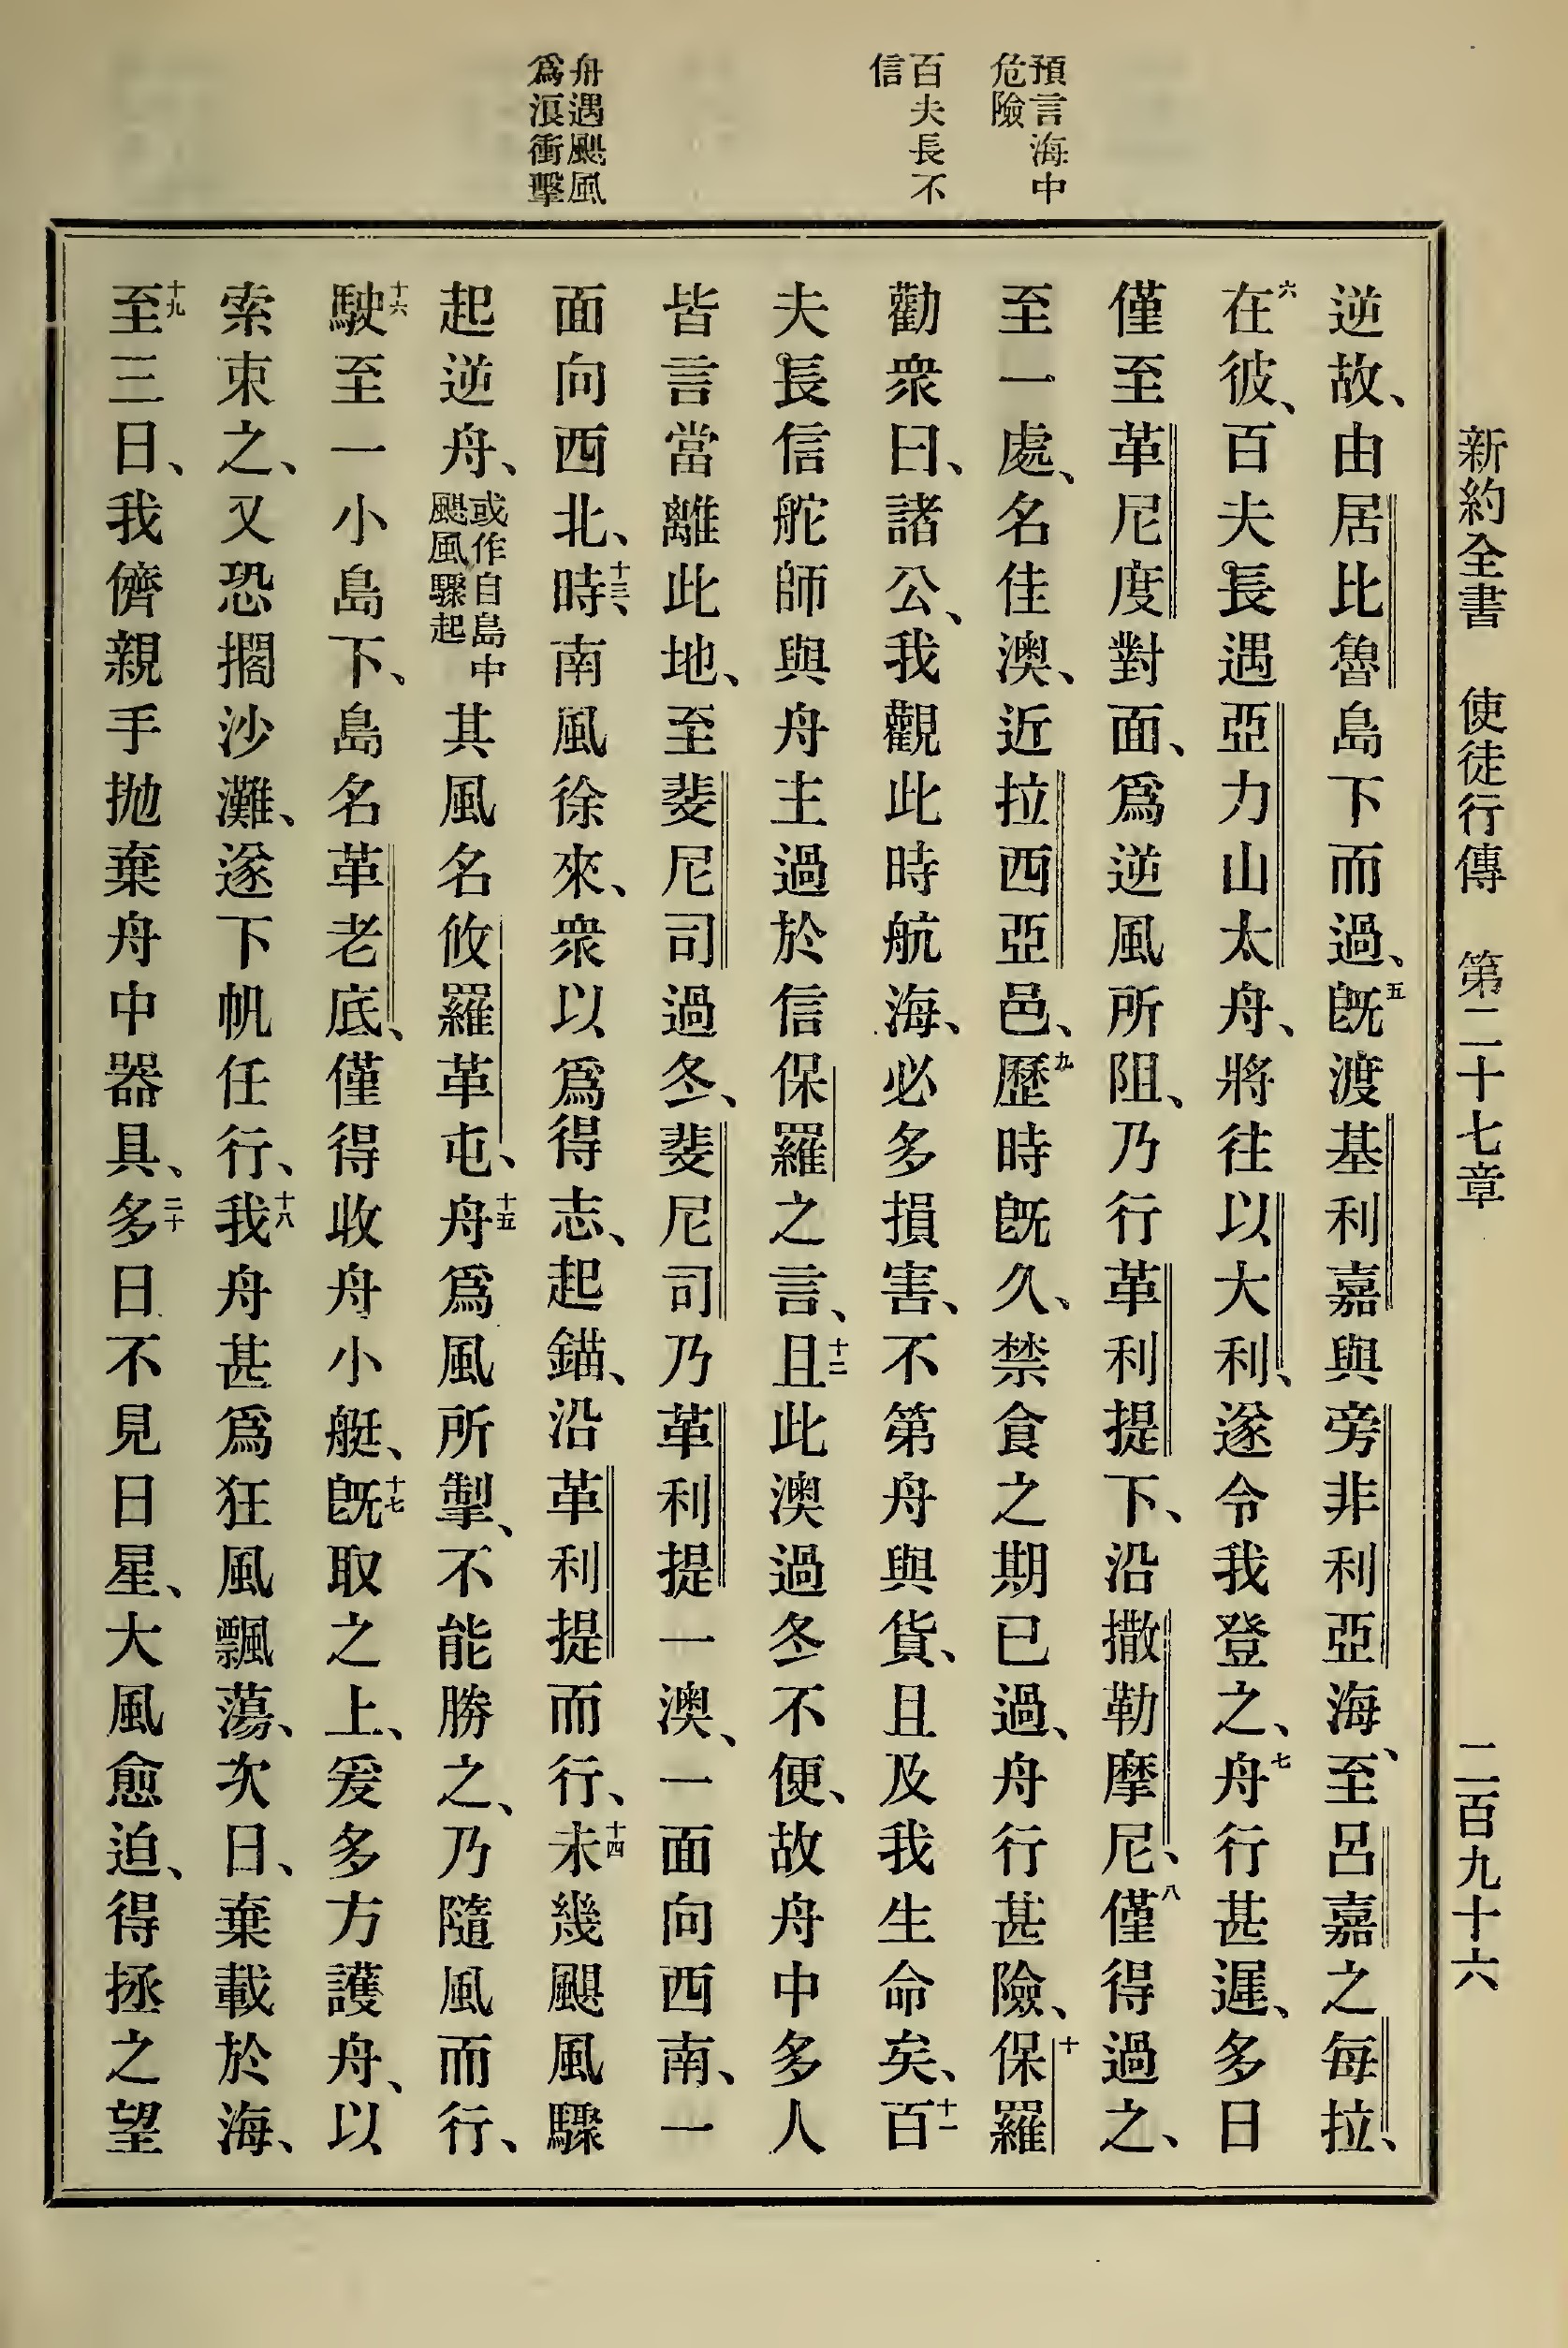 新約全書 使徒行傳 第二十七章 二百九十六
預言海中
危險
百夫長不
信
舟遇颶風
爲浪衝擊
逆故、由居比魯島下而過、五旣渡基利嘉與旁非利亞海、至呂嘉之每拉、
六在彼、百夫長遇亞力山太舟、將往以大利、遂令我登之、七舟行甚遲、多日
僅至革尼度對面、爲逆風所阻、乃行革利提下、沿撒勒摩尼、八僅得過之、
至一處、名佳澳、近拉西亞邑、九歷時旣久、禁食之期已過、舟行甚險、十保羅
勸衆曰、諸公、我觀此時航海、必多損害、不第舟與貨、且及我生命矣、十一百
夫長信舵師與舟主過於信保羅之言、十二且此澳過冬不便、故舟中多人
皆言當離此地、至斐尼司過冬、斐尼司乃革利提一澳、一面向西南、一
面向西北、十三時、南風徐來、衆以爲得志、起錨、沿革利提而行、十四未幾颶風驟
起逆舟、或作自島中颶風驟起其風名攸羅革屯、十五舟爲風所掣、不能勝之、乃隨風而行、
十六駛至一小島下、島名革老底、僅得收舟小艇、十七旣取之上、爰多方護舟、以
索束之、又恐擱沙灘、遂下帆任行、十八我舟甚爲狂風飄蕩、次日、棄載於海、
十九至三日、我儕親手抛棄舟中器具、二十多日不見日星、大風愈迫、得拯之望